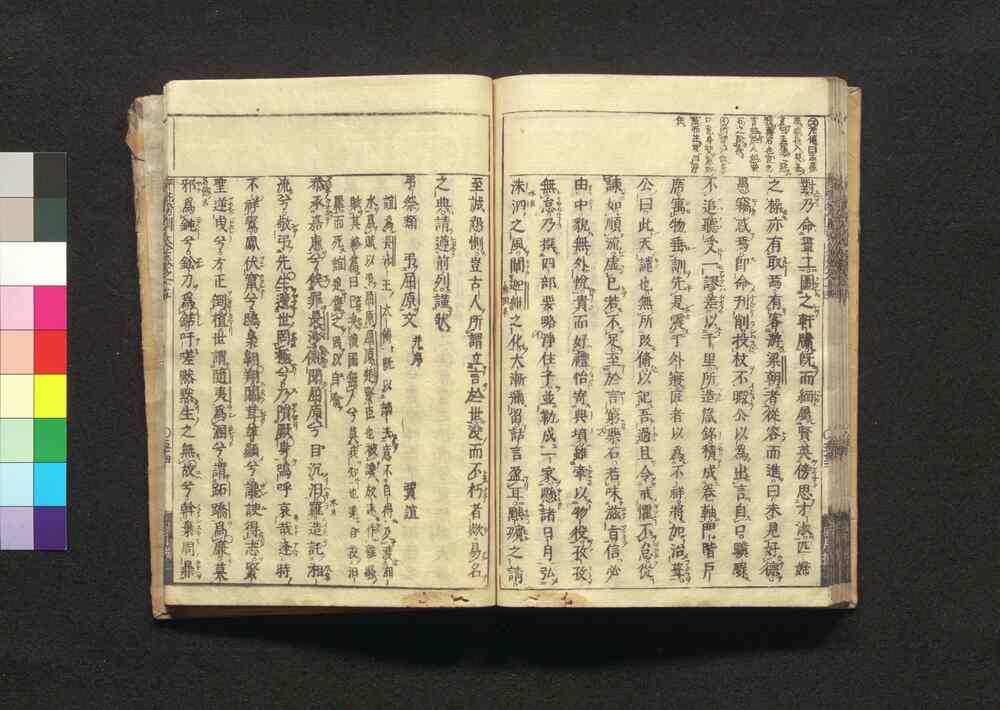 對乃命畫工圖之軒牖既而緬屬賢英傍思才淑匹婦
之操亦有取焉有客游梁朝者從容而進曰未見好德
愚竊惑焉即命刊削投杖不暇公以為出言自口驥騄
不追聽受一謬差以千里所造箴銘積成卷軸門階戶
席寓物垂訓先是震于外寢匠者以為不祥將加治葺
公曰此天譴也無所改脩以記吾過且令戒懼不怠從
諫如順流虛已若不足至於言窮藥石若味滋旨信必
由中貌無外悅貴而好禮怡寄典墳雖牽以物役孜孜
無怠乃撰四部要略淨住子並勒成一家懸諸日月弘
洙泗之風闡迦維之化大漸彌留話言盈耳黜殯之請
至誠懇惻豈古人所謂立言於世沒而不朽者歟易名
之典請遵前列謹狀
弔祭類 弔屈原文 并序 賈誼
誼爲長沙王太傅既以謫去意不自得及渡湘
水爲賦以弔屈原屈原楚賢臣也被讒放逐作離騷
賦其終篇曰已矣哉國無人兮莫我知也遂自投汨
羅而死誼追傷之因以自喻
恭承嘉惠兮俟罪長沙側聞屈原兮自沉汨羅造託湘
流兮敬弔先生遭世罔極兮乃隕厥身嗚呼哀哉逢時
不祥鸞鳳伏竄兮鴟梟翱翔闒茸尊顯兮讒諛得志賢
聖逆曳兮方正倒植世謂隨夷爲溷兮謂跖蹻爲廉莫
邪爲鈍兮鉛刀爲銛吁嗟默默生之無故兮斡棄周鼎